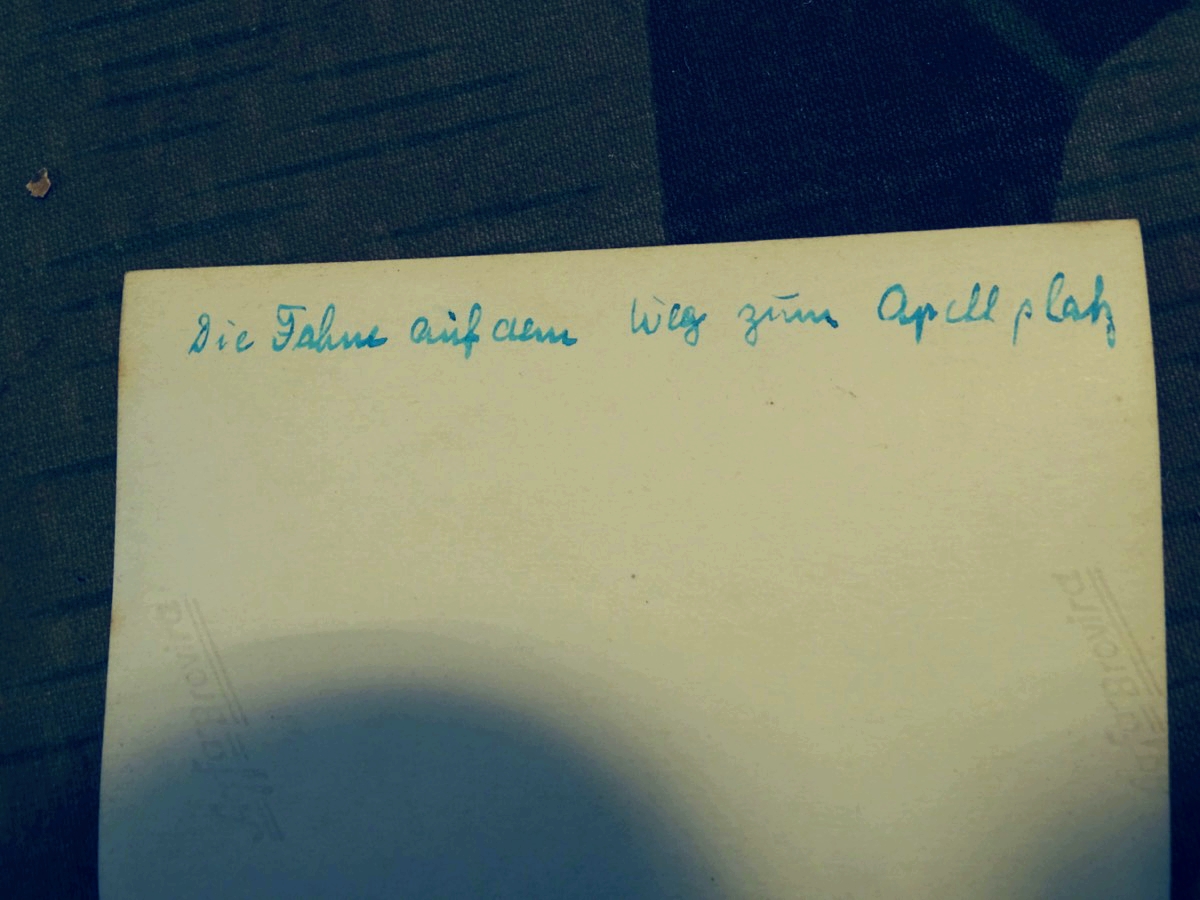 Die Fahne auf dem Weg zum Apellplatz
Agfa Brovira
Agfa Brovira